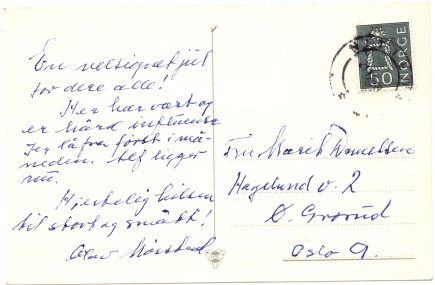 En velsignet jul
for dere alle!
Her har vært og
er hård influensa
Jeg lå fra først i må-
neden. Alf ligger
nu.
Hjertelig hilsen
til stort og smått!
Olav
Fru Marit Danielsen
Hagelund v. 2
Ø. Grorud
Oslo 9.
50
NORGE